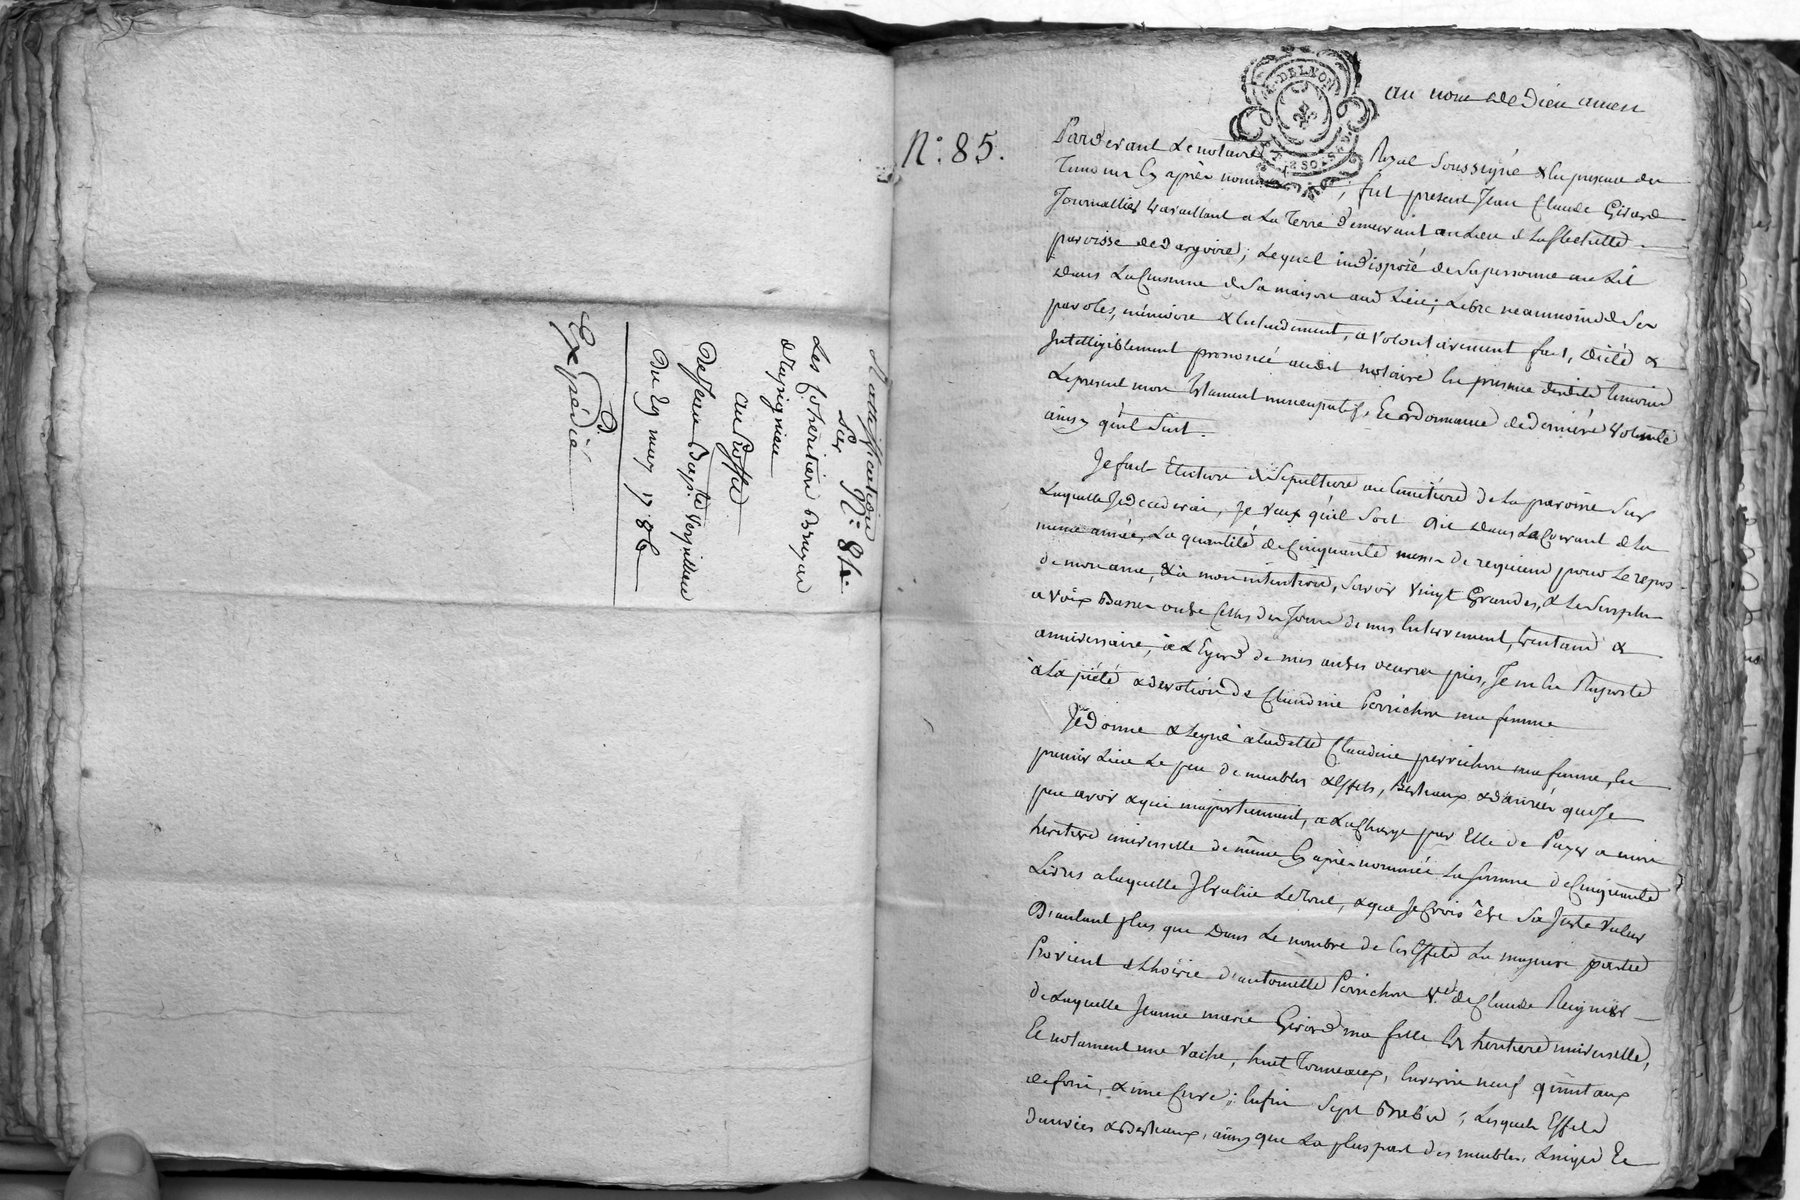 Ratiffication
Sur N.° 84.
Les cohéritiers Bruyas
au Proffit
De Jean Bap.te
Du 29 may 1786
Expédié
N.° 85.
DE LYON
2 SOLS
au nom de Dieu amen
Pardevant Le notaire Royal Soussigné & en presence des
Temoins Cy après nommés, fut present Jean Claude Girard
Journallier travaillant a La Terre Demeurant au Lieu de
paroisse de Dargoire; Lequel indisposé de sa personne au Lit
dans La Cuisinne de Sa maison aud. Lieu; Libre neanmoins de Ses
paroles, mémoire & entendement, a volontairement fait, dicté &
Intelligiblement prononcé audit notaire en presence desdits temoins
Le present mon testament nuncupatif, Et ordonnance de derniere volonté
ainsy qu'il Suit.
Je fait Election de Sepulture au Cimetiere de La paroisse Sur
Laquelle Je décederai, Je veux qu'il Soit dit dans Le Courant de La
meme année, La quantité de Cinquante messes de requiem pour Le repos
de mon ame, & à mon intention, Savoir vingt Grandes, & Le Surplus
a voix Basse outre Celles des Jours de mes Enterrement, trentaine &
anniversaire, à L'Egard de mes autres oeuvres pies, Je m'en Rapporte
à La piété & devotion de Claudine Perrichon ma femme
Je donne & Legue à Ladette Claudine perrichon ma femme, en
premier Lieu Le peu de meubles & Effets, Bestiaux & danrées que Je
peu avoir & qui m'appartiennent, a La Charge par Elle de Payer a mon
heritiere universelle de même Cy après nommée La Somme de Cinquante
Livres a laquelle J'Evalue Le tout, & que Je Crois être Sa Juste valeur
D'autant plus que Dans Le nombre de Ces Effets La majeure partie
Provient de L'hoirie d'antoinette Perrichon V.e de Claude Reignier
de Laquelle Jeanne marie Girard ma fille Est heritiere universelle,
Et notament une vache, huit Tonneaux, Environ neuf quintaux
de foin, & une Cuve; Enfin Sept Brebis; Lesquels Effets
Danrées & Bestiaux, ainsy que La pluspart des meubles, Linges Et